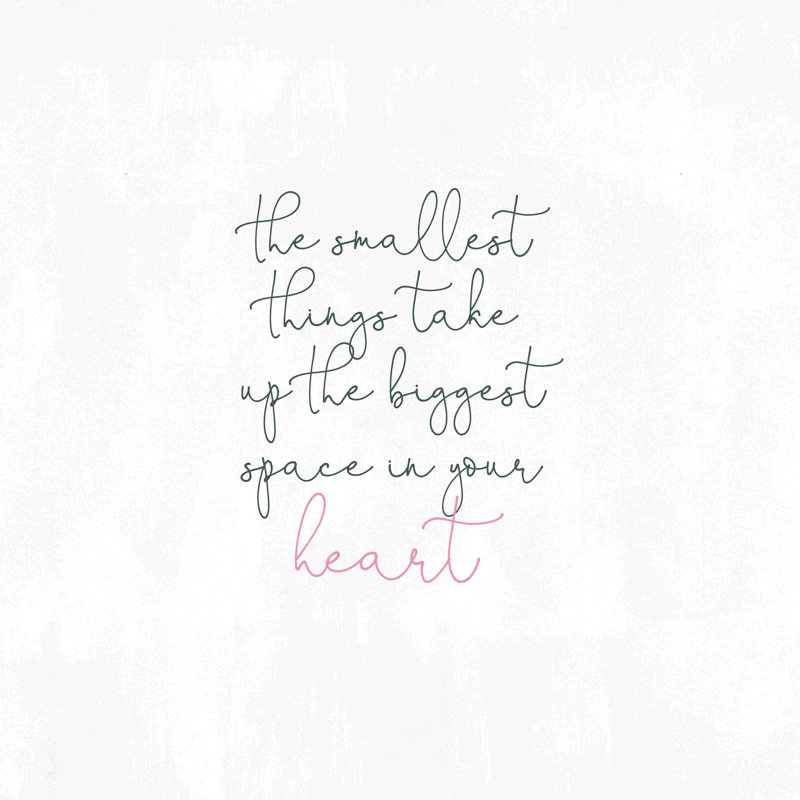 the smallest
things take
up the biggest
space in your
heart